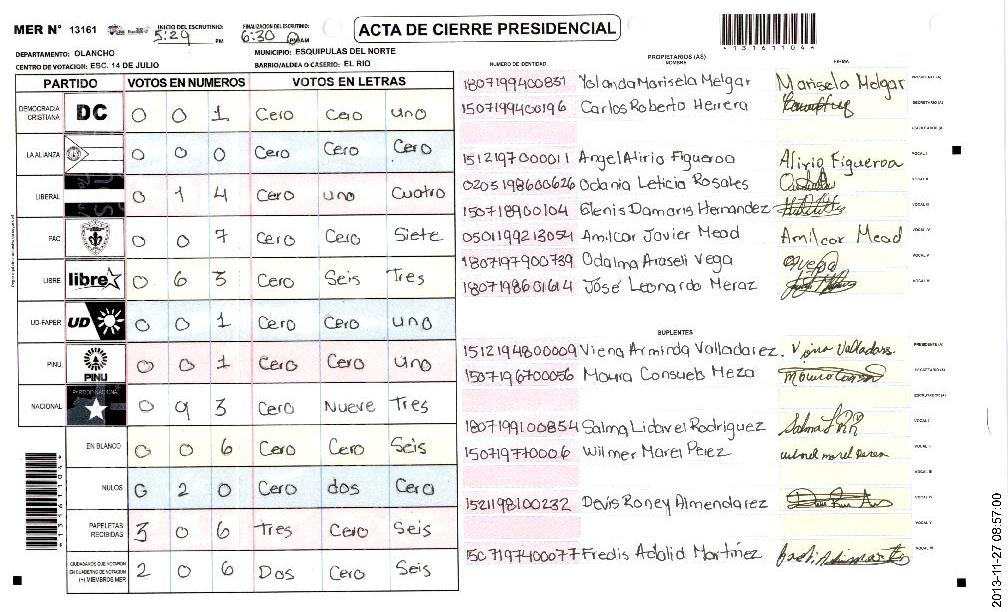 MER N° 13161 INICIO DEL ESCRUTINIO: 5:29 PM FINALIZACION DEL ESCRUTINIO: 6:30 PM AM ACTA DE CIERRE PRESIDENCIAL
DEPARTAMENTO: OLANCHO MUNICIPIO: ESQUIPULAS DEL NORTE
CENTRO DE VOTACION: ESC. 14 DE JULIO BARRIO/ALDEA O CASERIO: EL RIO
PARTIDO VOTOS EN NUMEROS VOTOS EN LETRAS
DEMOCRACIA CRISTIANA DC 0 0 1 Cero Cero uno
LA ALIANZA 0 0 0 Cero Cero Cero
LIBERAL 0 1 4 Cero uno Cuatro
PAC 0 0 7 Cero Cero Siete
LIBRE libre 0 6 3 Cero Seis Tres
UD-FAPER UD 0 0 1 Cero Cero uno
PINU PINU 0 0 1 Cero Cero uno
NACIONAL 0 9 3 Cero Nueve Tres
EN BLANCO 0 0 6 Cero Cero Seis
NULOS 0 2 0 Cero dos Cero
PAPELETAS RECIBIDAS 3 0 6 Tres Cero Seis
CIUDADANOS QUE VOTARON EN CUADERNO DE VOTACION (+) MIEMBROS MER 2 0 6 Dos Cero Seis
131611044
PROPIETARIOS (AS)
NUMERO DE IDENTIDAD NOMBRE FIRMA
1807199400831 Yolanda Marisela Melgar Marisela Melgar PRESIDENTE (A)
1507199400196 Carlos Roberto Herrera SECRETARIO (A)
ESCRUTADOR (A)
1512197000011 Angel Alirio Figueroa Alirio Figueroa VOCAL I
0205198600626 Odania Leticia Rosales VOCAL II
150718900104 Glenis Damaris Hernandez VOCAL III
0501199213054 Amilcar Javier Mead Amilcar Mead VOCAL IV
1807197900739 Odalma Araseli Vega VOCAL V
1807198601614 José Leonardo Meraz VOCAL VI
SUPLENTES
1512194800009 Viena Arminda Valladarez. PRESIDENTE (A)
1507196700056 Moura Consuelo Meza SECRETARIO (A)
ESCRUTADOR (A)
1807199100854 Salma Lidavel Rodriguez VOCAL I
150719770006 Wilmer Marel Perez VOCAL II
VOCAL III
1521198100232 Devis Roney Almendarez VOCAL IV
VOCAL V
1507197400077 Fredis Adolid Martinez VOCAL VI
2013-11-27 08:57:00